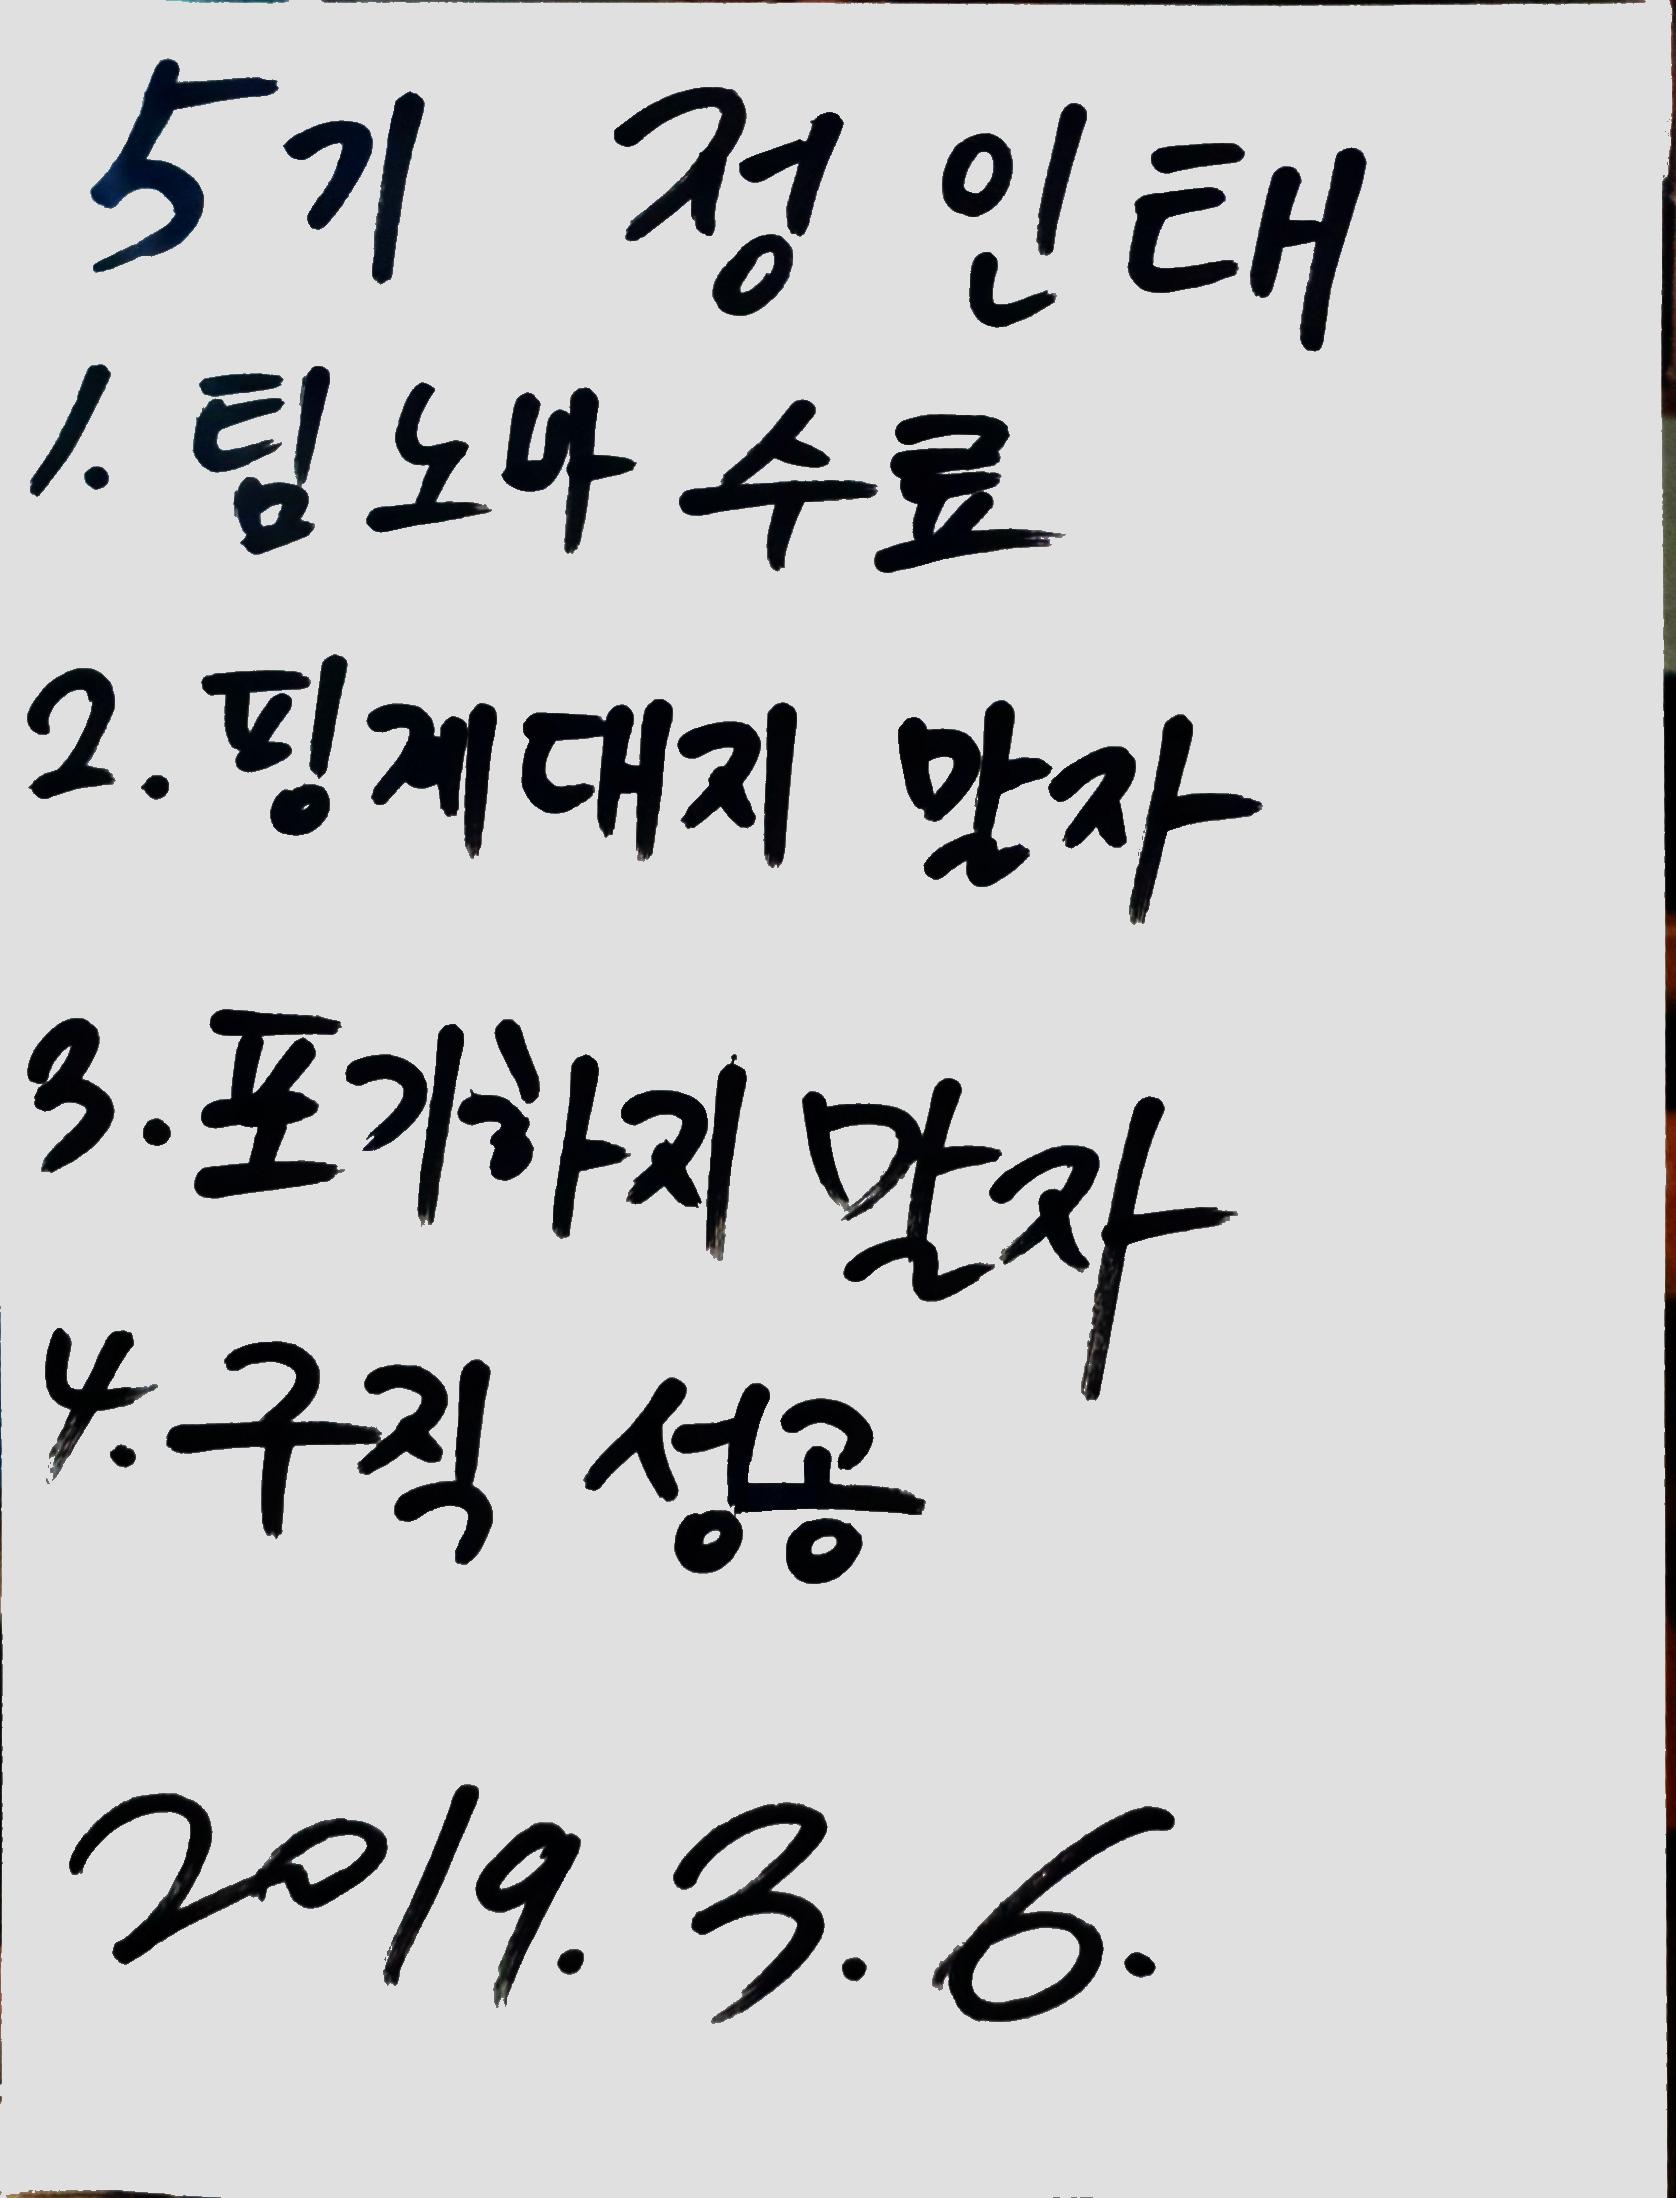 5기 정인태
1. 팀노바 수료
2. 핑계대지 말자
3. 포기하지 말자
4. 구직 성공
2019. 3. 6.